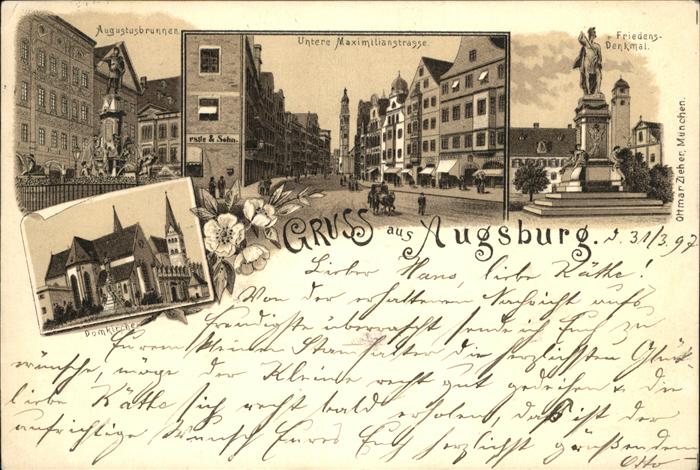 Augustusbrunnen.
Untere Maximilianstrasse.
Friedens-
Denkmal.
rstle & Sohn.
Domkirche
Ottmar Zieher, München.
Gruss aus Augsburg. d. 31/3.97
Lieber Hans, liebe Käthe!
Von der erhaltenen Nachricht aufs
freudigste überrascht sende ich Euch zu
Eurem kleinen Stammhalter die herzlichsten Glück-
wünsche, möge der Kleine recht gut gedeihen & die
liebe Käthe sich recht bald erholen, das ist der
aufrichtige Wunsch Eures Euch herzlichst grüßenden
Otto